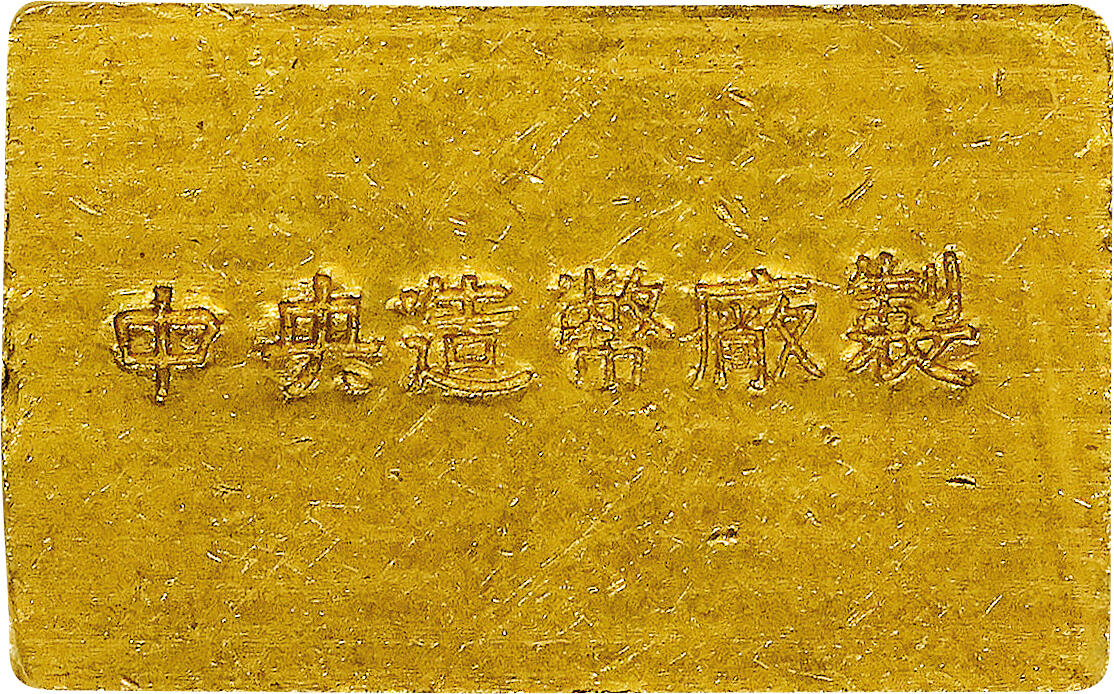 中央造幣廠製